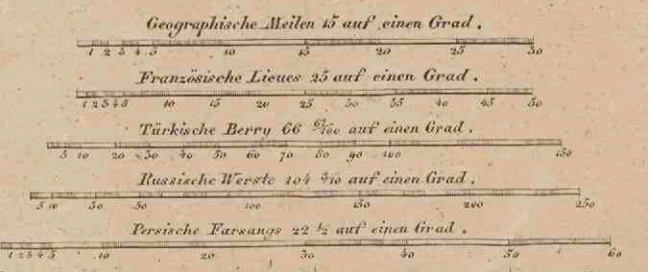 Geographische Meilen 15 auf einen Grad.
1 2 3 4 5 10 15 20 25 30
Französische Lieues 25 auf einen Grad.
1 2 3 4 5 10 15 20 25 30 35 40 45 50
Türkische Berry 66 67/100 auf einen Grad.
5 10 20 30 40 50 60 70 80 90 100 150
Russische Werste 104 3/10 auf einen Grad.
5 10 30 50 100 150 200 250
Persische Farsangs 22 1/2 auf einen Grad.
1 2 3 4 5 10 20 30 40 50 60